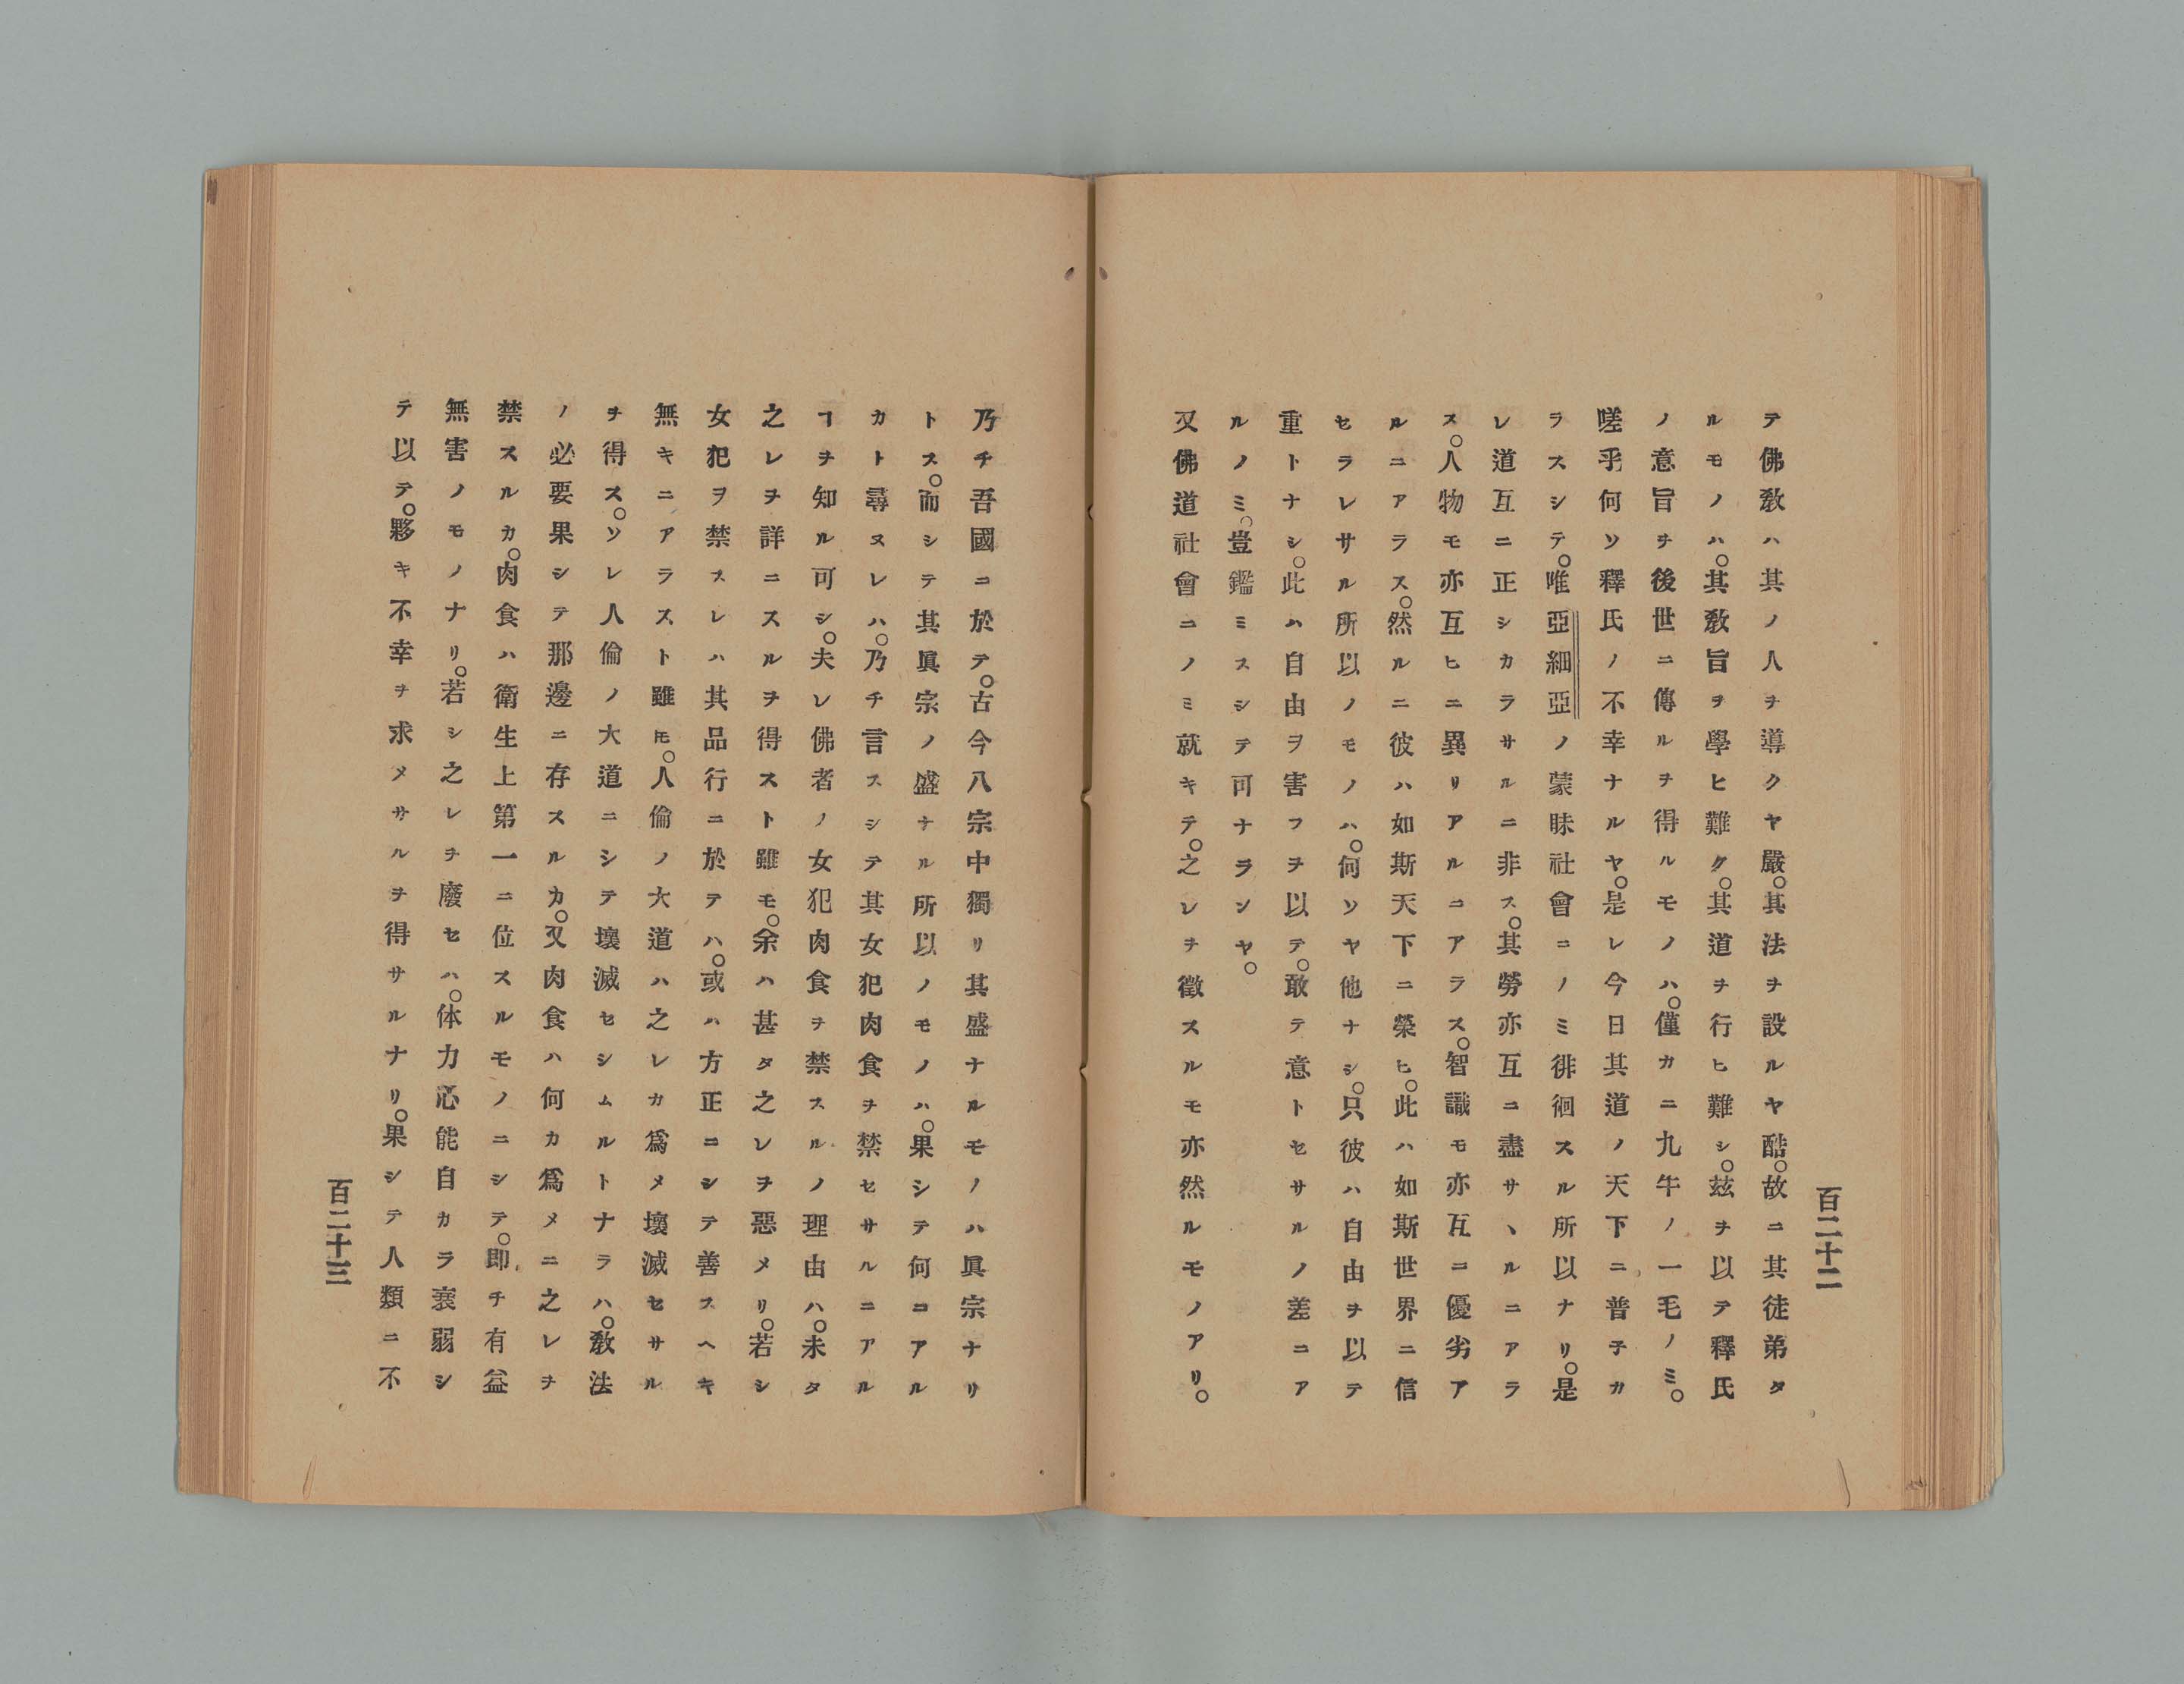 テ佛敎ハ其ノ人ヲ導クヤ嚴。其法ヲ設ルヤ酷。故ニ其徒弟タ
ルモノハ。其敎旨ヲ學ヒ難ク。其道ヲ行ヒ難シ。玆ヲ以テ釋氏
ノ意旨ヲ後世ニ傳ルヲ得ルモノハ。僅カニ九牛ノ一毛ノミ。
嗟乎何ソ釋氏ノ不幸ナルヤ。是レ今日其道ノ天下ニ普子カ
ラスシテ。唯亞細亞ノ蒙昧社會ニノミ徘徊スル所以ナリ。是
レ道互ニ正シカラサルニ非ス。其勞亦互ニ盡サヽルニアラ
ス。人物モ亦互ヒニ異リアルニアラス。智識モ亦互ニ優劣ア
ルニアラス。然ルニ彼ハ如斯天下ニ榮ヒ。此ハ如斯世界ニ信
セラレサル所以ノモノハ。何ソヤ他ナシ。只彼ハ自由ヲ以テ
重トナシ。此ハ自由ヲ害フヲ以テ。敢テ意トセサルノ差ニア
ルノミ。豈鑑ミスシテ可ナランヤ。
又佛道社會ニノミ就キテ。之レヲ徵スルモ亦然ルモノアリ。
百二十二
乃チ吾國ニ於テ。古今八宗中獨リ其盛ナルモノハ眞宗ナリ
トス。而シテ其眞宗ノ盛ナル所以ノモノハ。果シテ何コアル
カト尋ヌレハ。乃チ言スシテ其女犯肉食ヲ禁セサルニアル
ヿヲ知ル可シ。夫レ佛者ノ女犯肉食ヲ禁スルノ理由ハ。未タ
之レヲ詳ニスルヲ得スト雖モ。余ハ甚タ之レヲ惡メリ。若シ
女犯ヲ禁スレハ其品行ニ於テハ。或ハ方正ニシテ善スヘキ
無キニアラスト雖モ。人倫ノ大道ハ之レカ爲メ壞滅セサル
ヲ得ス。ソレ人倫ノ大道ニシテ壞滅セシムルトナラハ。敎法
ノ必要果シテ那邊ニ存スルカ。又肉食ハ何カ爲メニ之レヲ
禁スルカ。肉食ハ衛生上第一ニ位スルモノニシテ。即チ有益
無害ノモノナリ。若シ之レヲ廢セハ。体力心能自カラ衰弱シ
テ以テ。夥キ不幸ヲ求メサルヲ得サルナリ。果シテ人類ニ不
百二十三